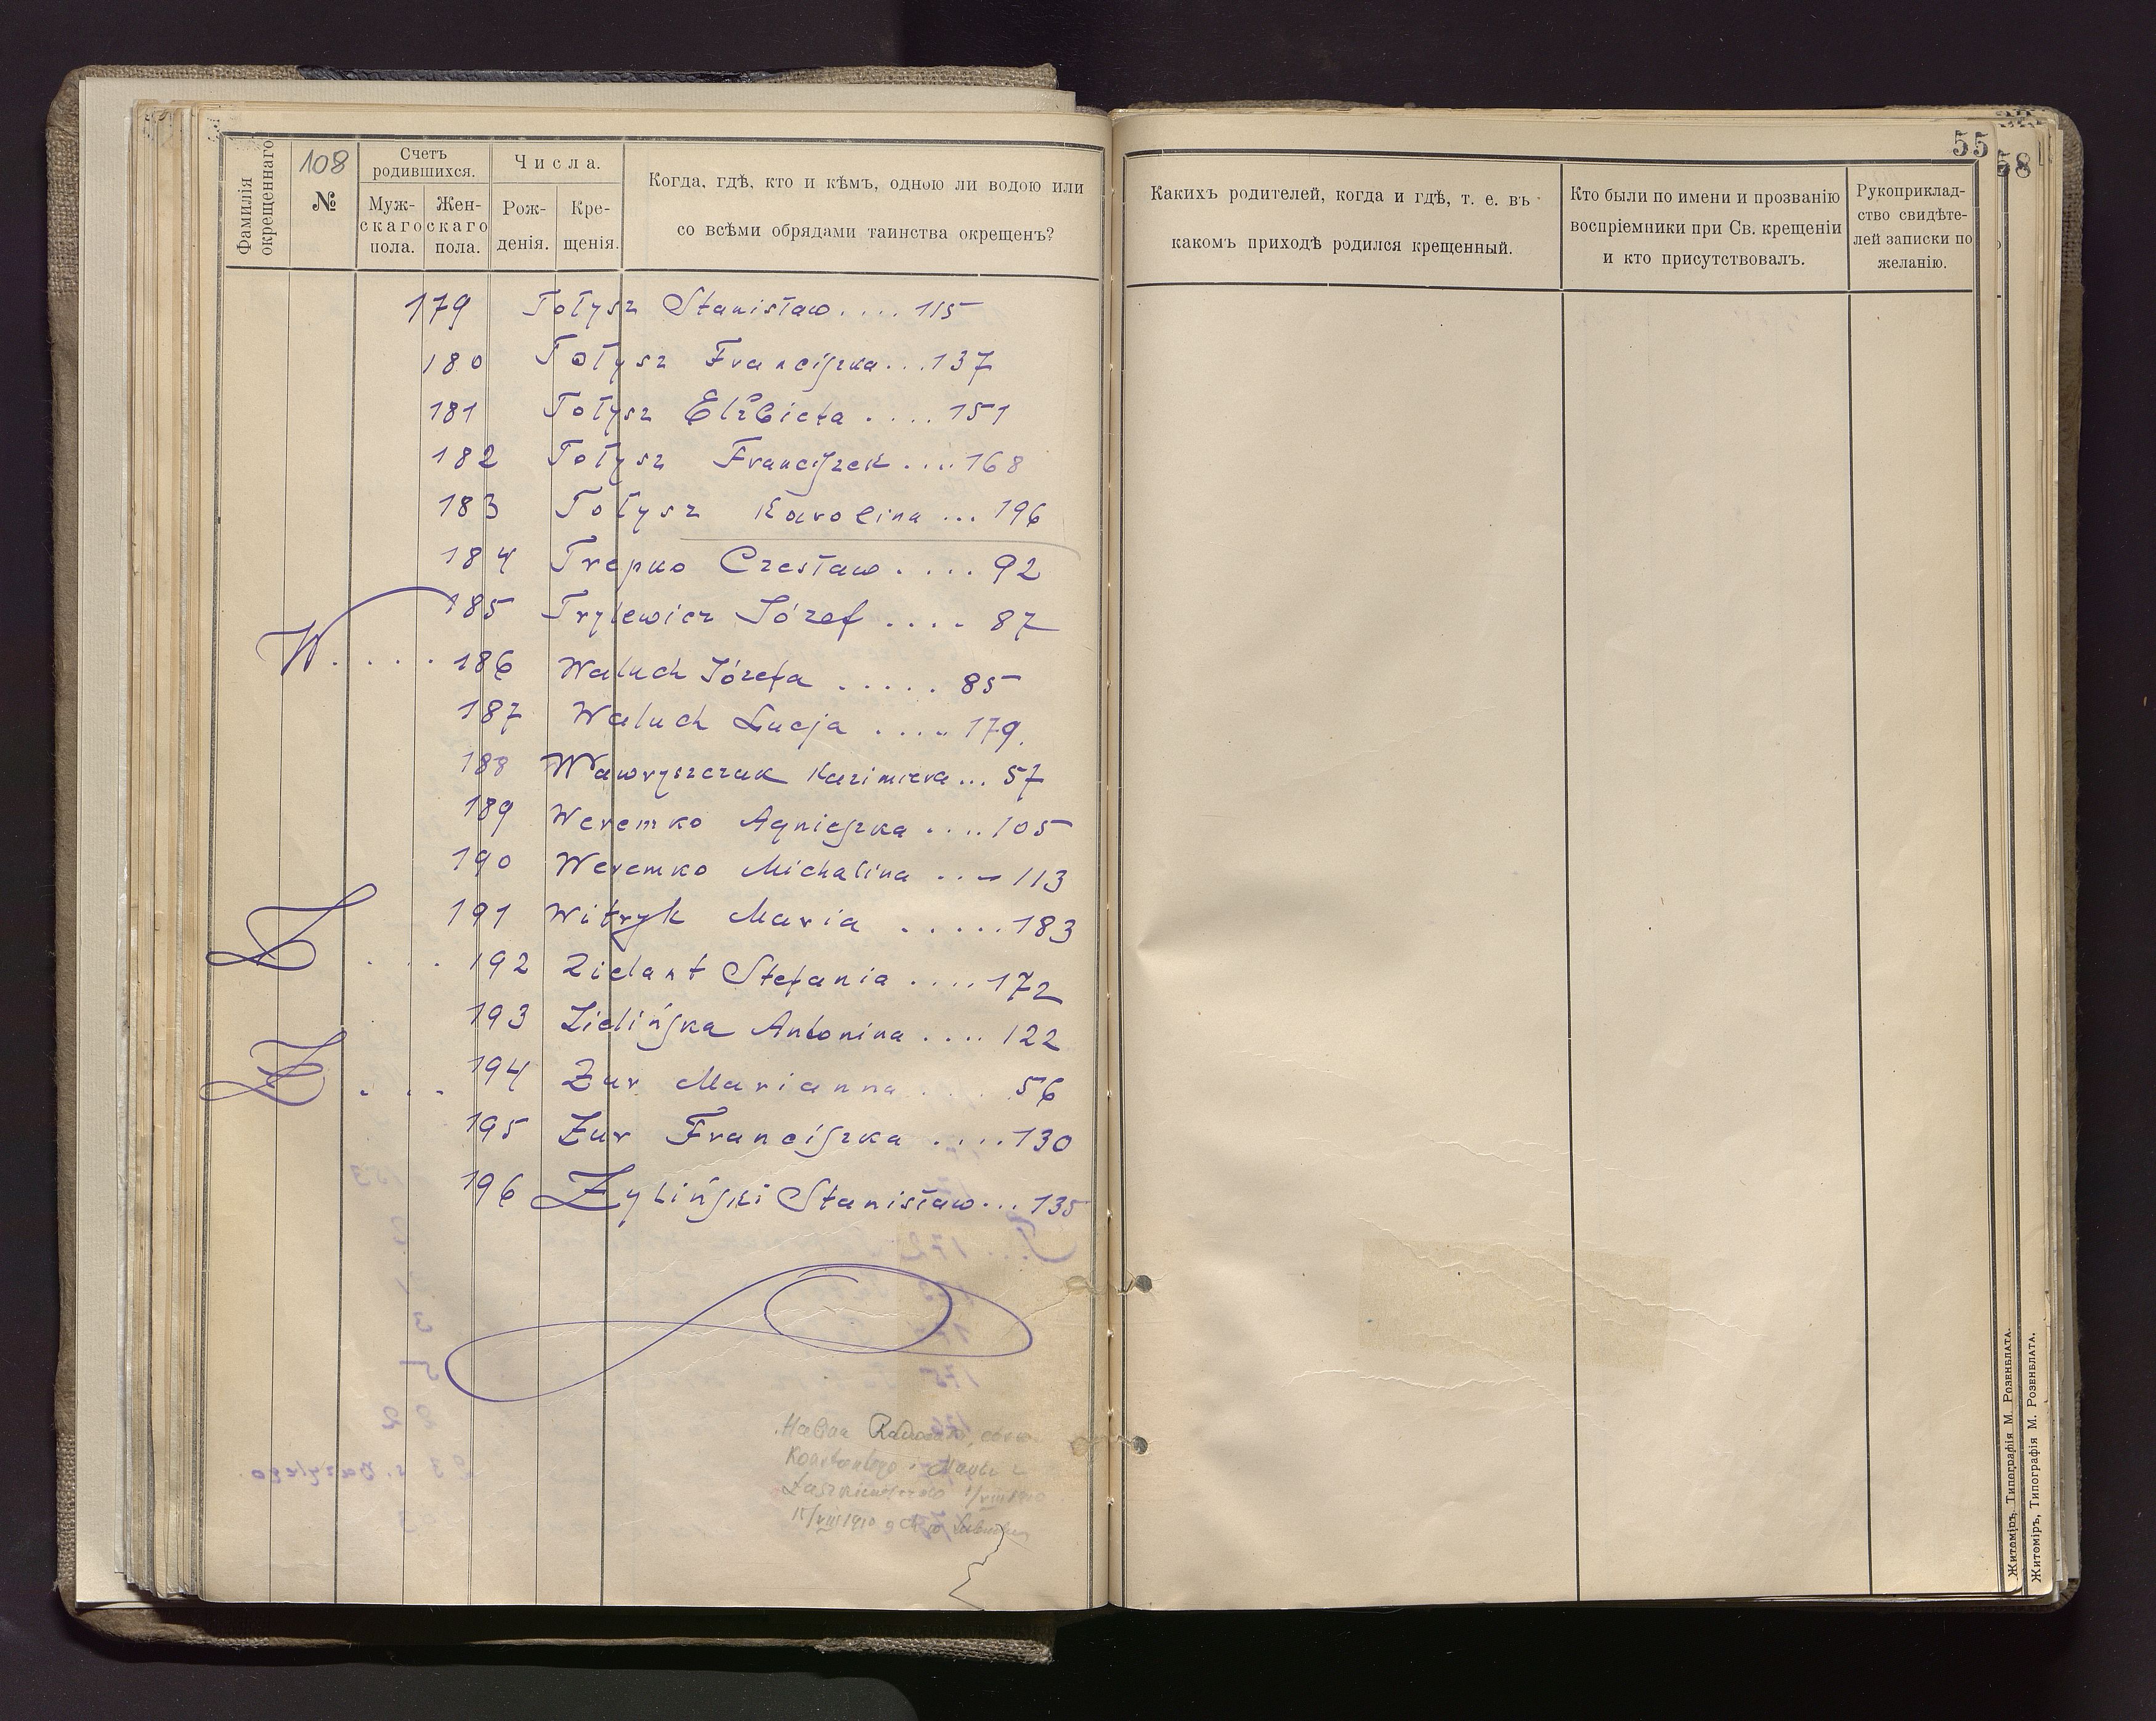 Фамилія окрещеннаго
108
№
Счетъ родившихся.
Муж-скаго пола.
Жен-скаго пола.
Числа.
Рож-денія.
Кре-щенія.
Когда, гдѣ, кто и кѣмъ, одною ли водою или
со всѣми обрядами таинства окрещенъ?
179 Tołysz Stanisław.... 115
180 Tołysz Franciszka...137
181 Tołysz Elżbieta .... 151
182 Tołysz Franciszek ....168
183 Tołysz Karolina ... 196
184 Trepko Czesław.... 92
185 Trylewicz Józef .... 87
W..... 186 Waluch Józefa ..... 85
187 Waluch Łucja .... 179.
188 Wawryszczuk Kazimiera... 57
189 Weremko Agnieszka ....105
190 Weremko Michalina ... 113
191 Witryk Maria .....183
Z ... 192 Zielant Stefania ....172
193 Zielińska Antonina .... 122
Ż ... 194 Żur Marianna .... 56
195 Żur Franciszka ....130
196 Żyliński Stanisław... 135
15/VIII 1910
55
58
Какихъ родителей, когда и гдѣ, т. е. въ
какомъ приходѣ родился крещенный.
Кто были по имени и прозванію
воспріемники при Св. крещеніи
и кто присутствовалъ.
Рукоприклад-
ство свидѣте-
лей записки по
желанію.
Житоміръ, Типографія М. Розенблата.
Житоміръ, Типографія М. Розенблата.